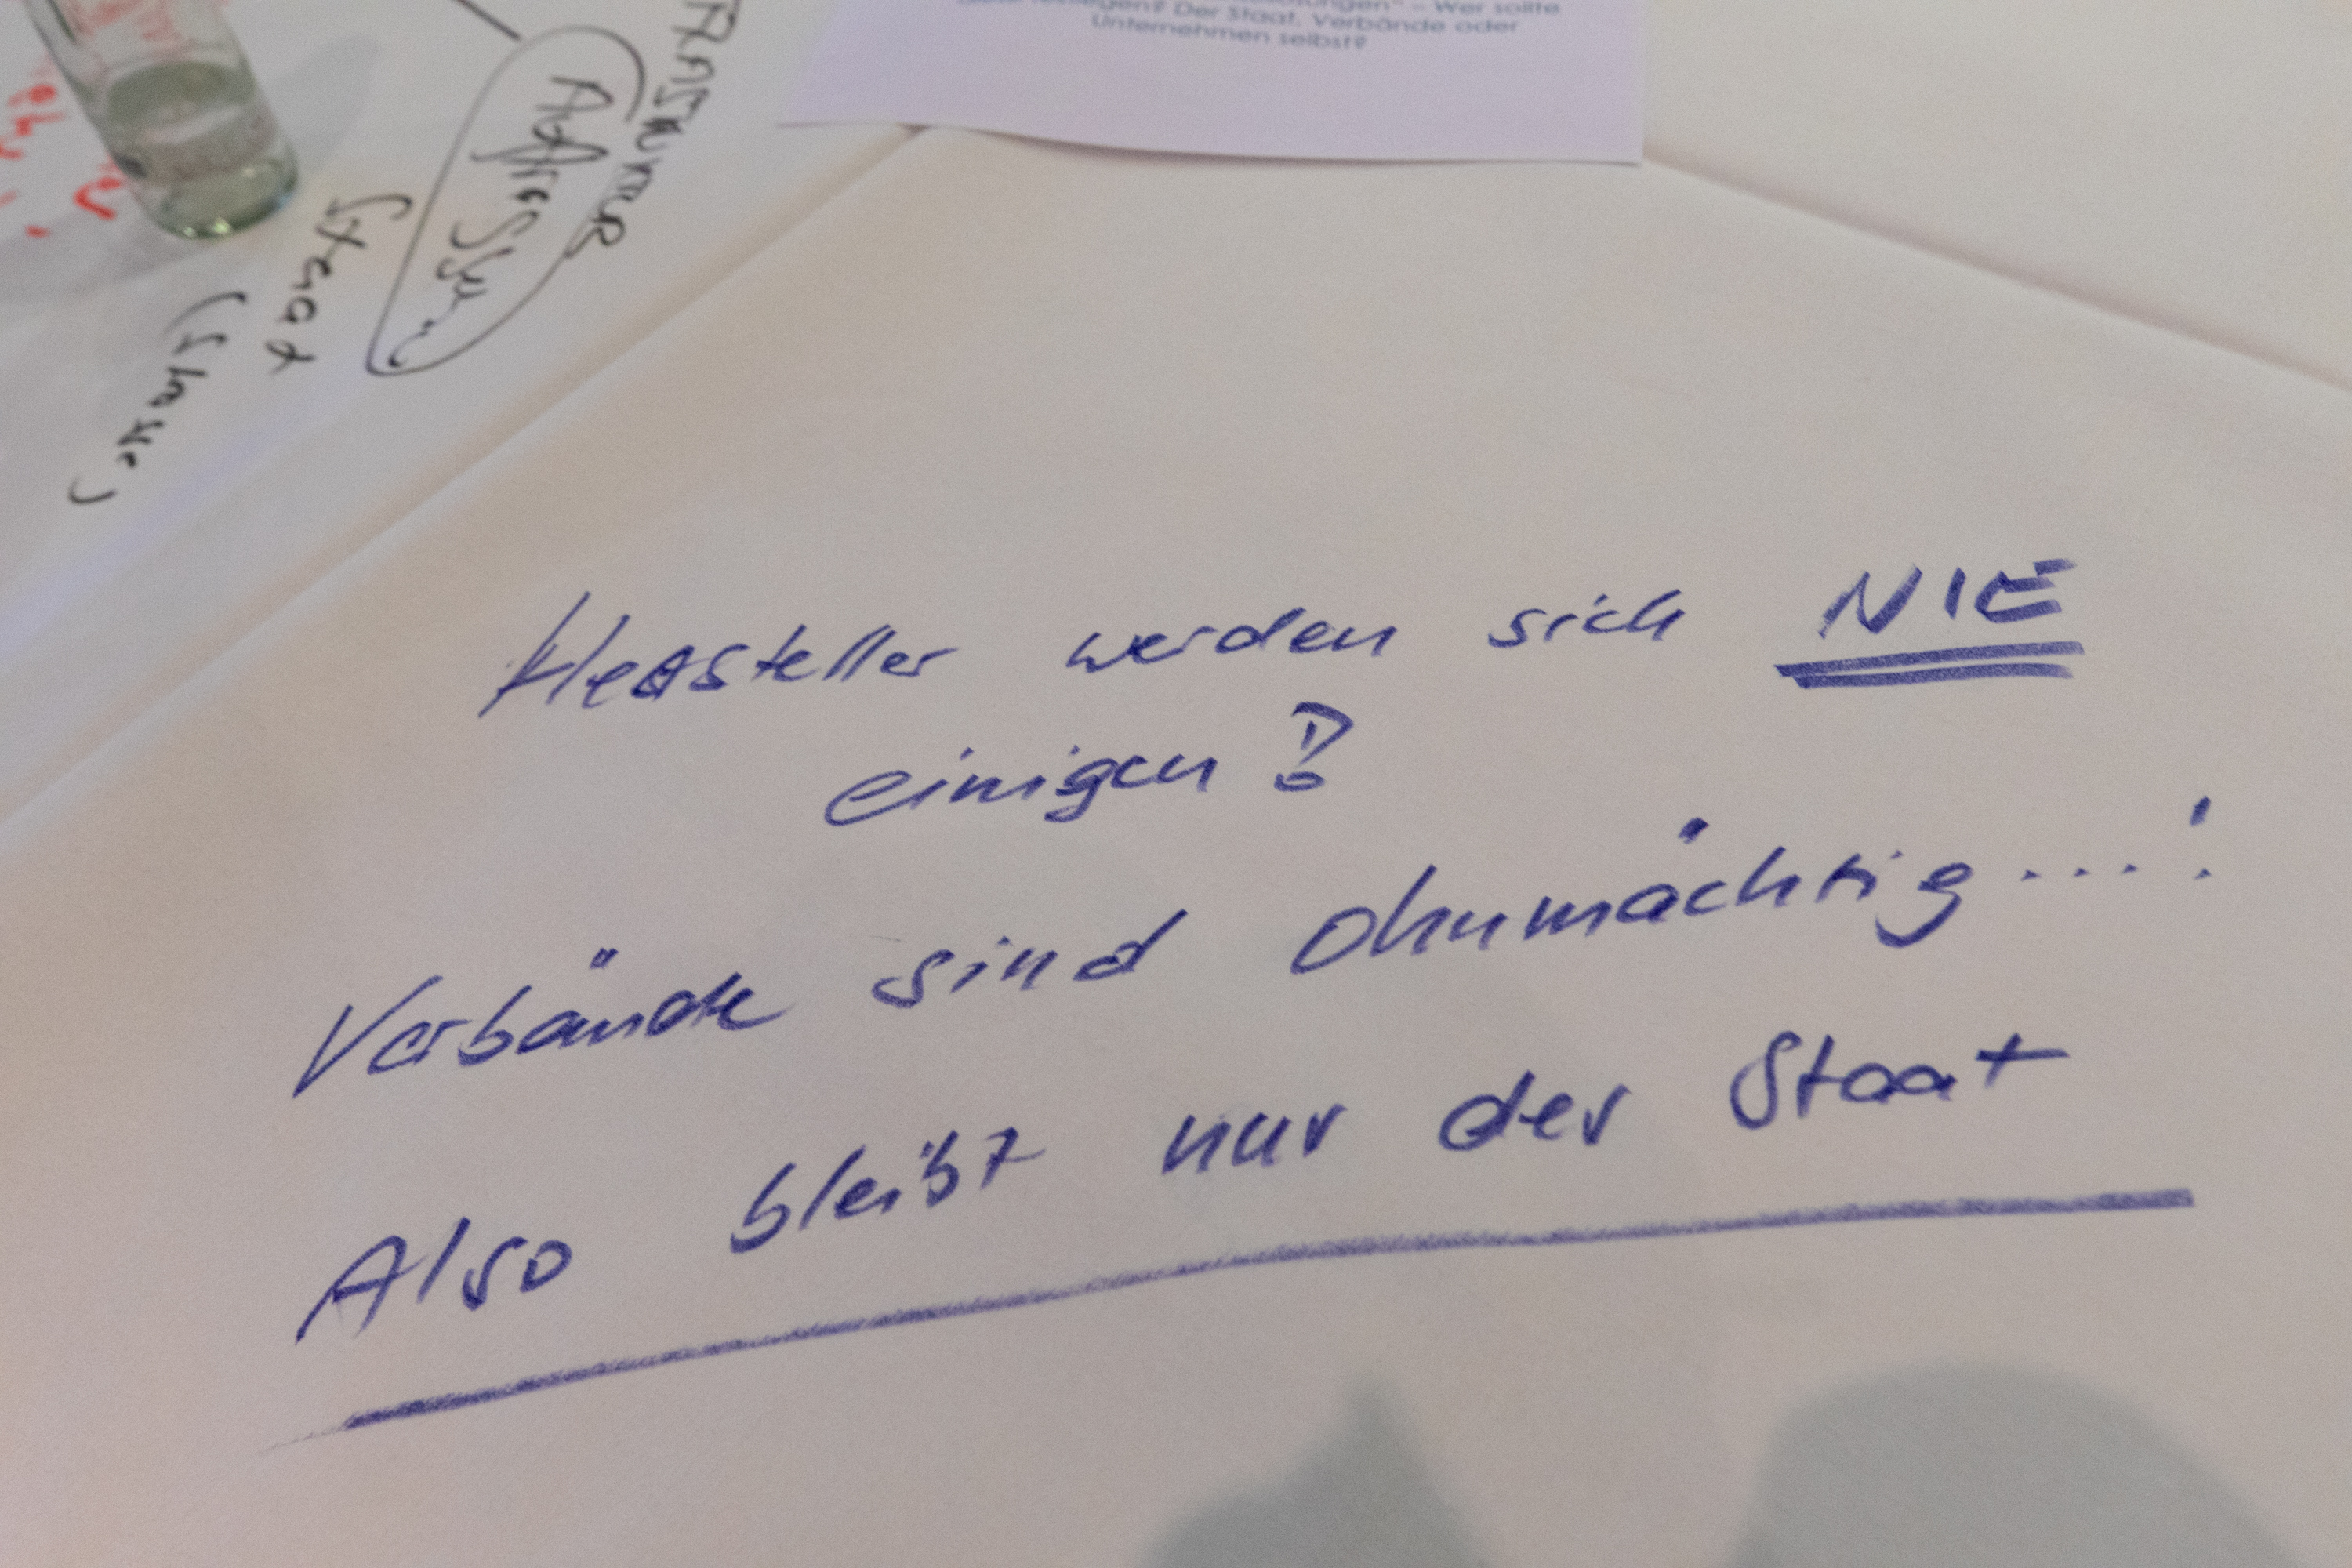 – Wer sollte
Der Staat, Verbände oder
Unternehmen selbst?
Hersteller werden sich NIE
einigen?
Verbände sind ohnmächtig....!
Also bleibt nur der Staat